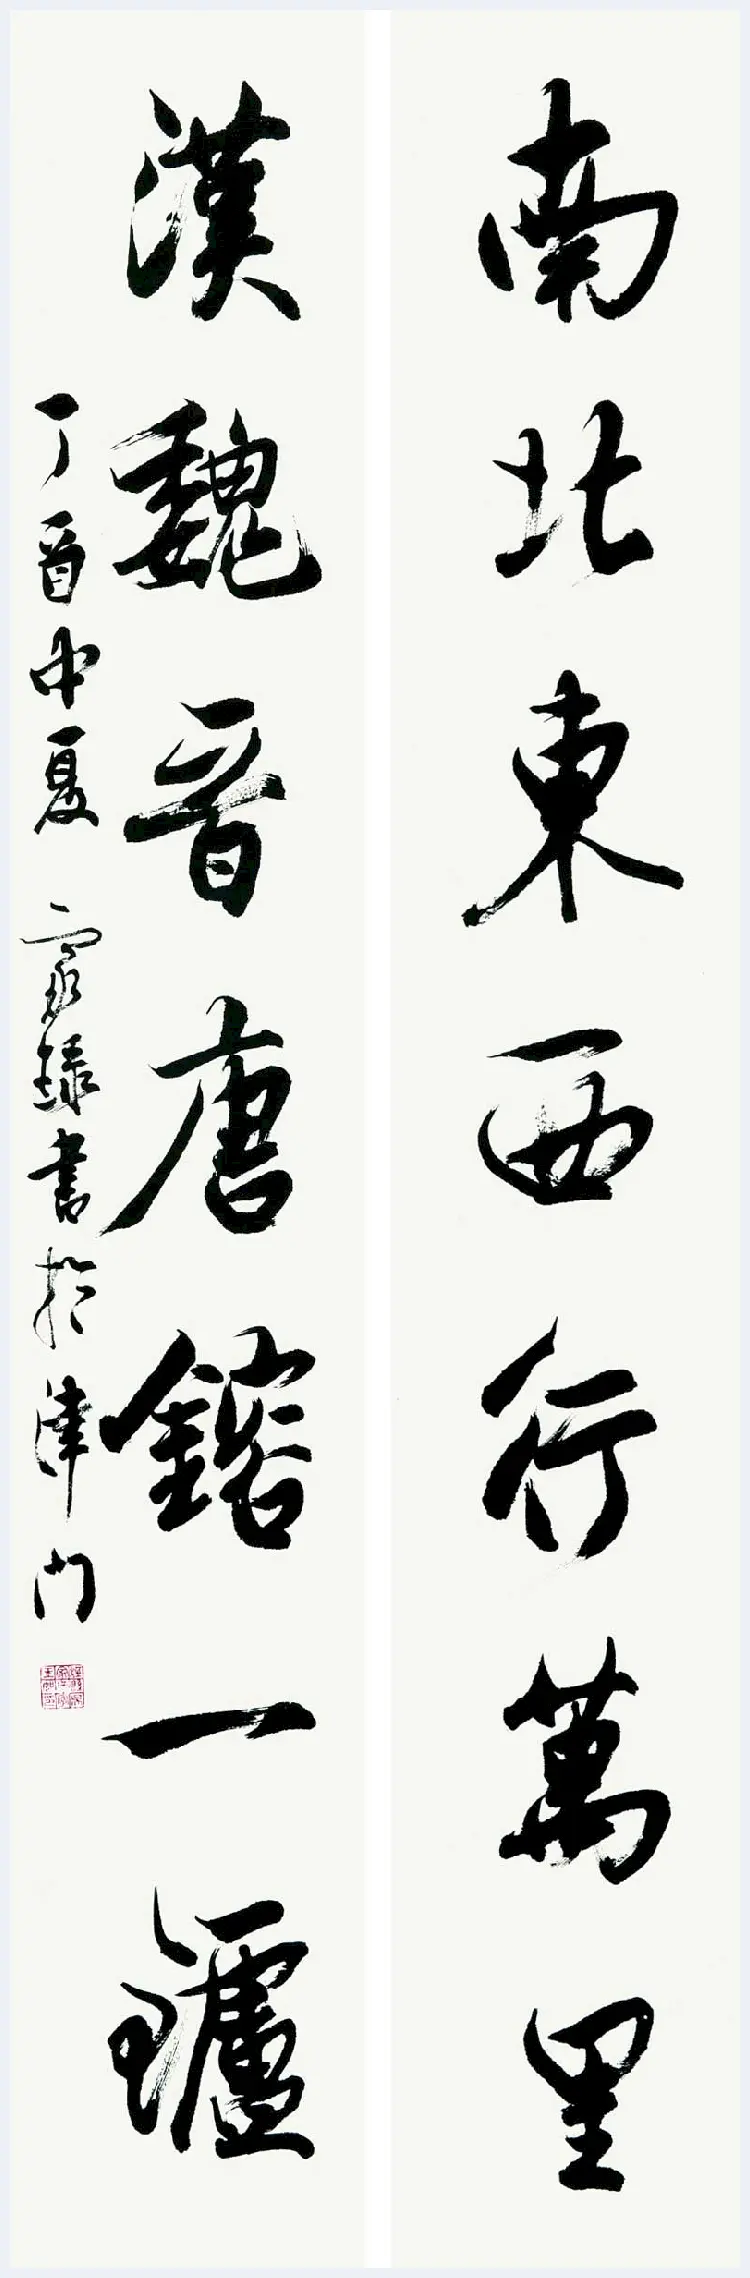 南北東西行萬里
漢魏晉唐鎔一鑪
丁酉中夏 家璘書於津門